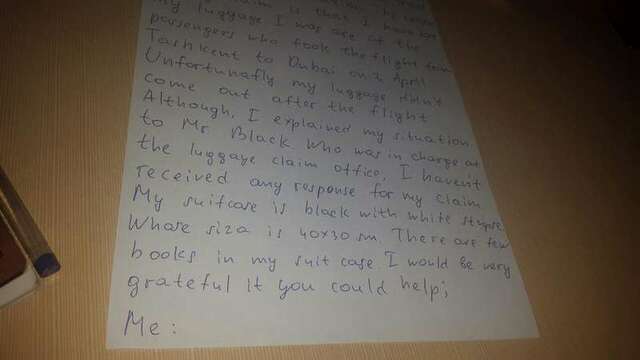 claim is that I have lost
my luggage I was one of the
passengers who took the flight from
Tashkent to Dubai on 2 April
Unfortunatly my luggage didn't
come out after the flight
Although, I explained my situation
to Mr Black who was in charge at
the luggage claim office, I haven't
received any response for my claim
My suitcase is black with white stripe
Whose siza is 40x30 sm. There are few
books in my suit case. I would be very
grateful it you could help;
Me: